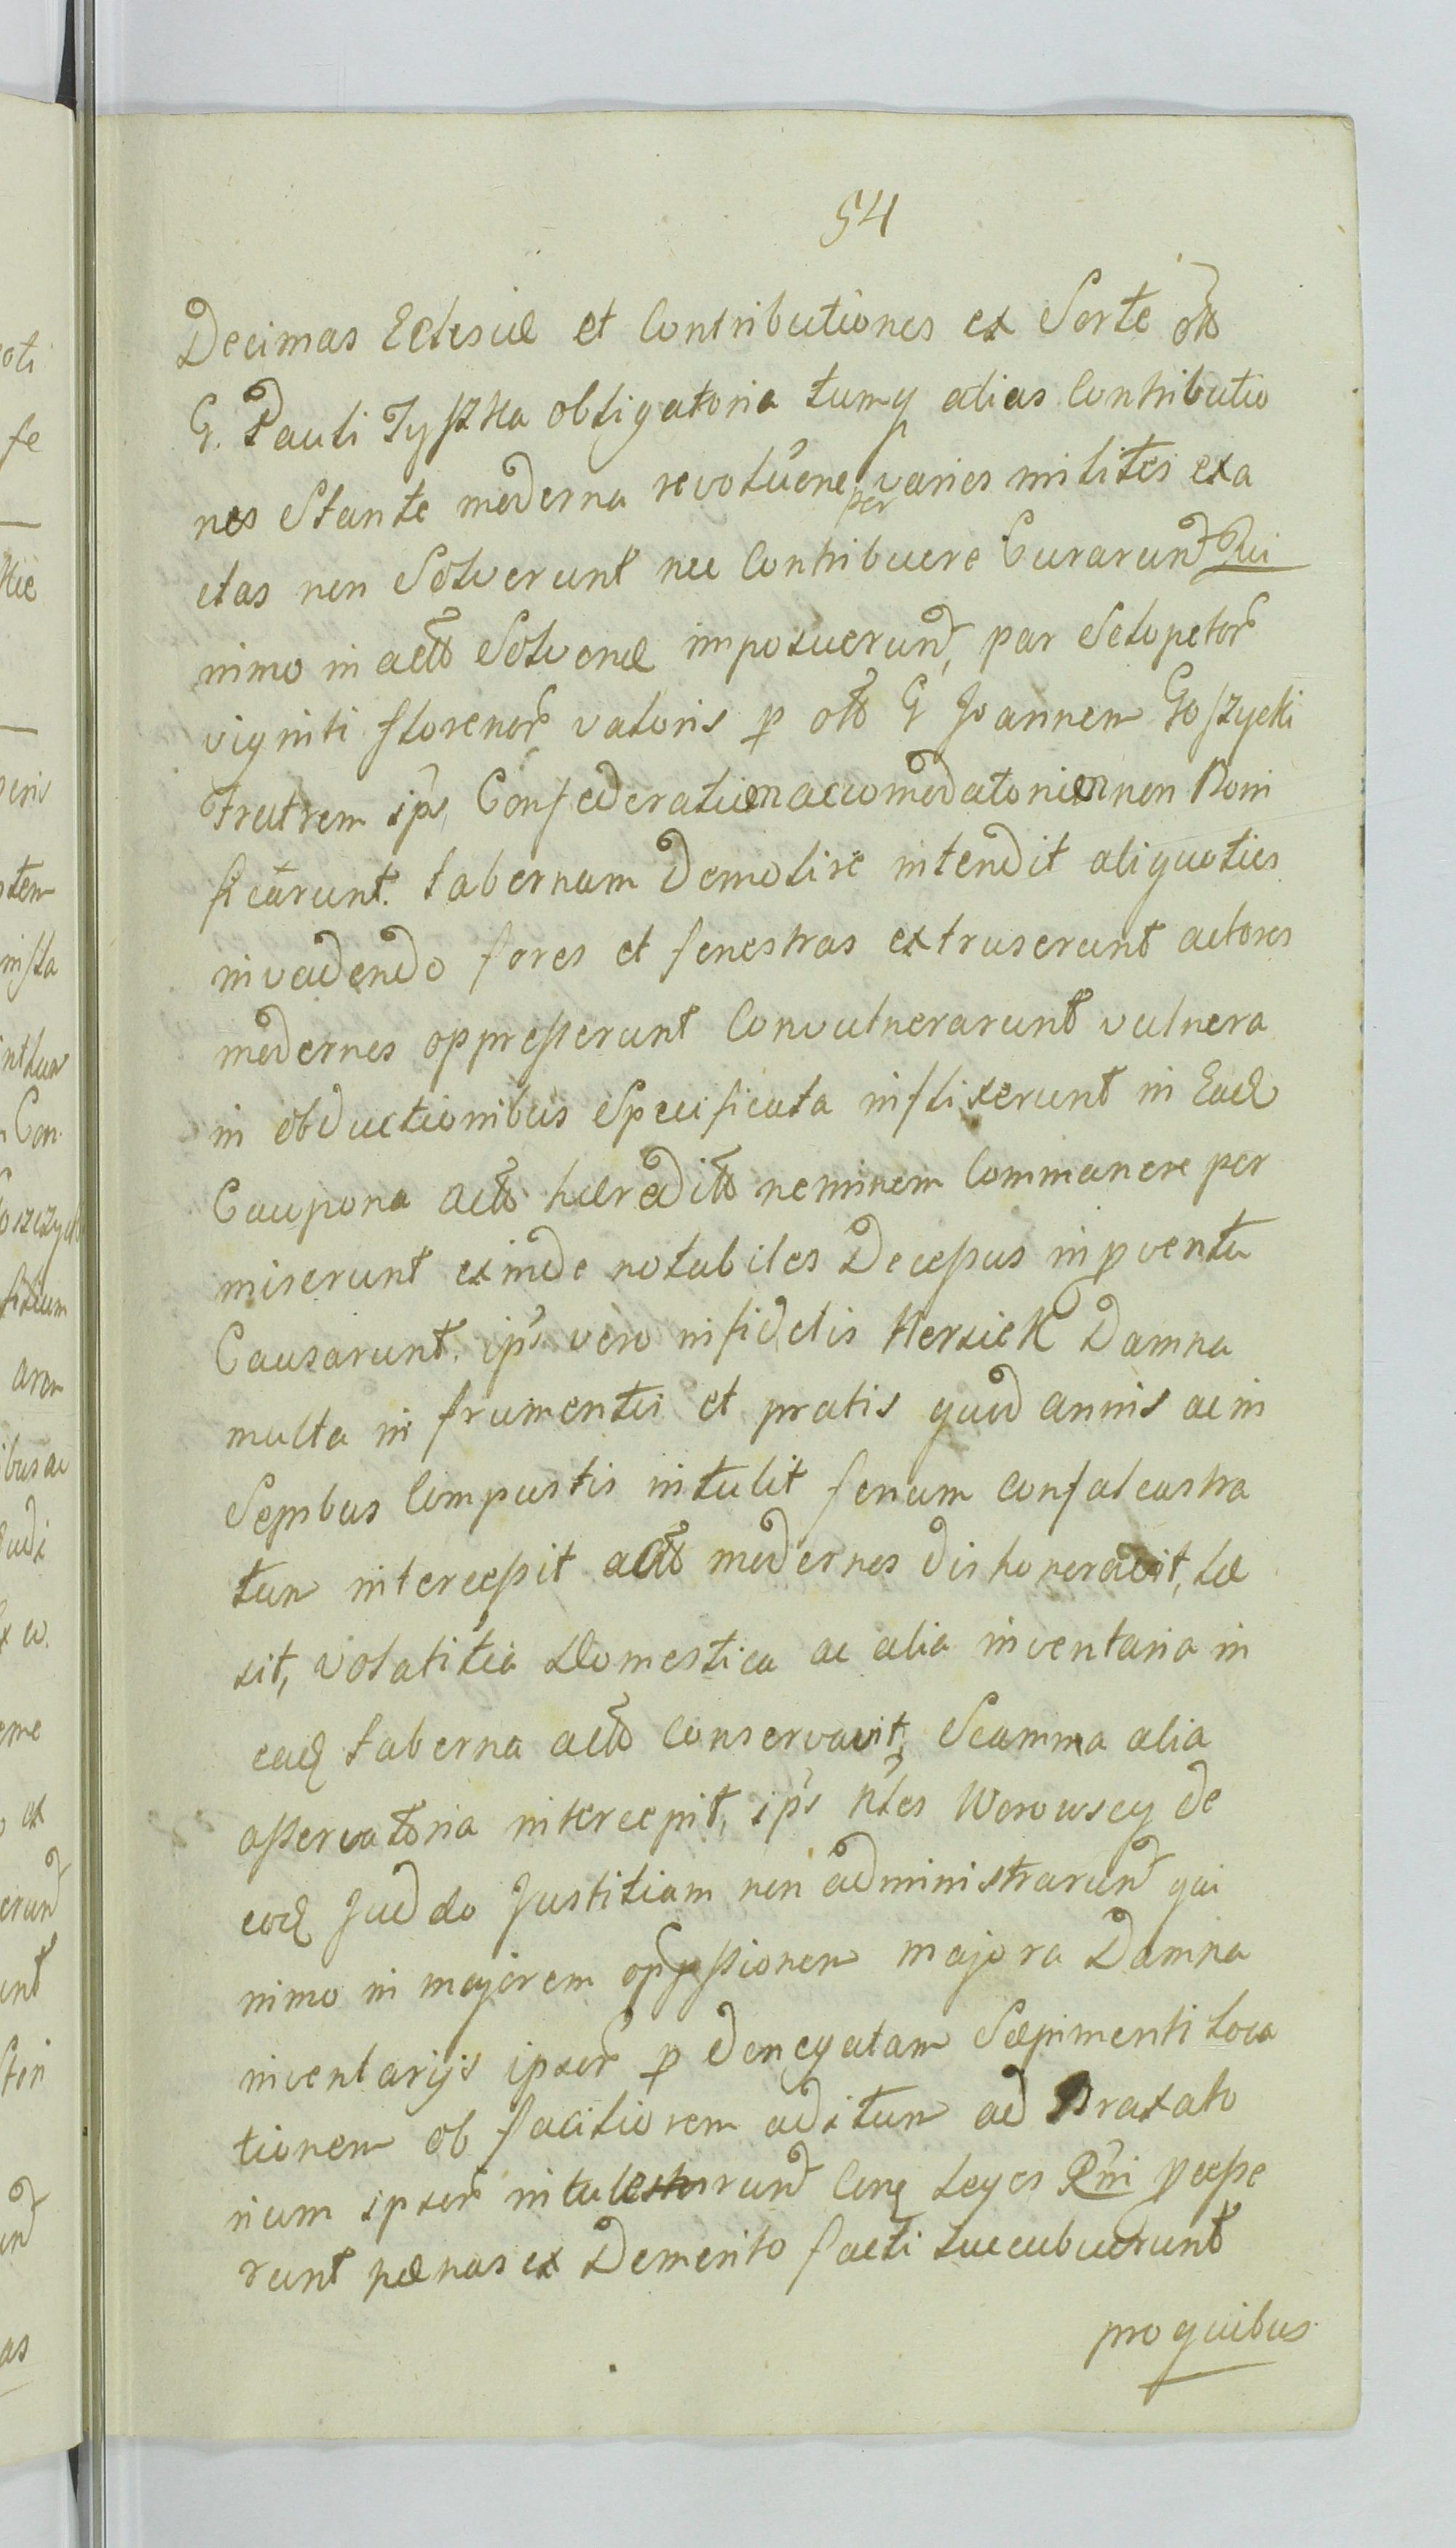 54
Decimas Eclesiæ et Contributiones ex Sorte olto
G. Pauli Tyszka obligatoria tumq alias Contributio
nes Stante moderna revolũone per varios milites exa
ctas non Solverunt nec Contribuere Curarunt Qui
nimo in actto Solvend imposuerunt, par Sclopetor
viginti florenor valoris p olto G Joannem Goszycki
Fratrem ips Confederationi accomodatorium non Boni
ficarunt. tabernam Demolire intendit aliquoties
invadendo fores et fenestras extruserunt actores
modernos oppresserunt Convulnerarunt vulnera
in obductionibus Specificata inflixerunt in Ead
Caupona actto hæreditto neminem Commanere per
miserunt exinde notabiles Decessus in pventu
Causarunt. ips vero infidelis Herszek Damna
multa in frumentis et pratis quod annis ac in
Sepibus Compustis intulit fenum confalcastra
tum intercepsit actto modernos dishonoravit, læ
sit, volatitia Domestica ac alia inventaria in
ead taberna actto Conservavit, Scamna alia
asservatoria intercepit, ips Ntes Worowscy de
eod Judæo Justitiam non administrarunt qui
nimo in majorem oppssionem majora Damna
inventarijs ipsor p denegatam Sæpimenti loca
tionem ob faciliorem aditum ad Braxato
rium ipsor intulerunt Cong Leges Rni pcepse
runt pænas ex Demerito facti succubuerunt
pro quibus